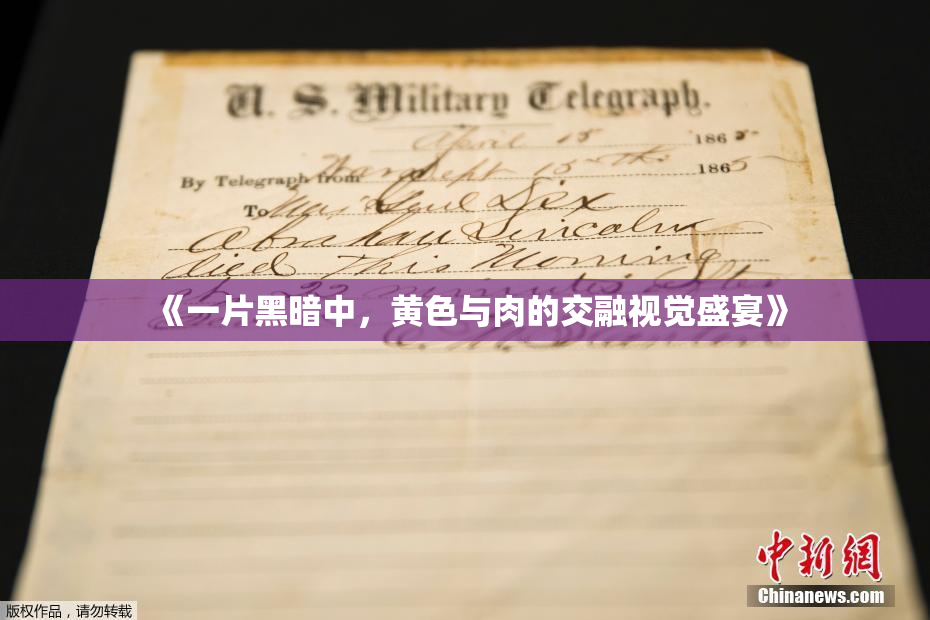 U. S. Military Telegraph.
April 15 1865
By Telegraph from War Dept 15th 1865
To Maj Genl Dix
Abraham Lincoln
died This Morning
at 22 minutes after
《一片黑暗中，黄色与肉的交融视觉盛宴》
中新网
Chinanews.com
版权作品，请勿转载